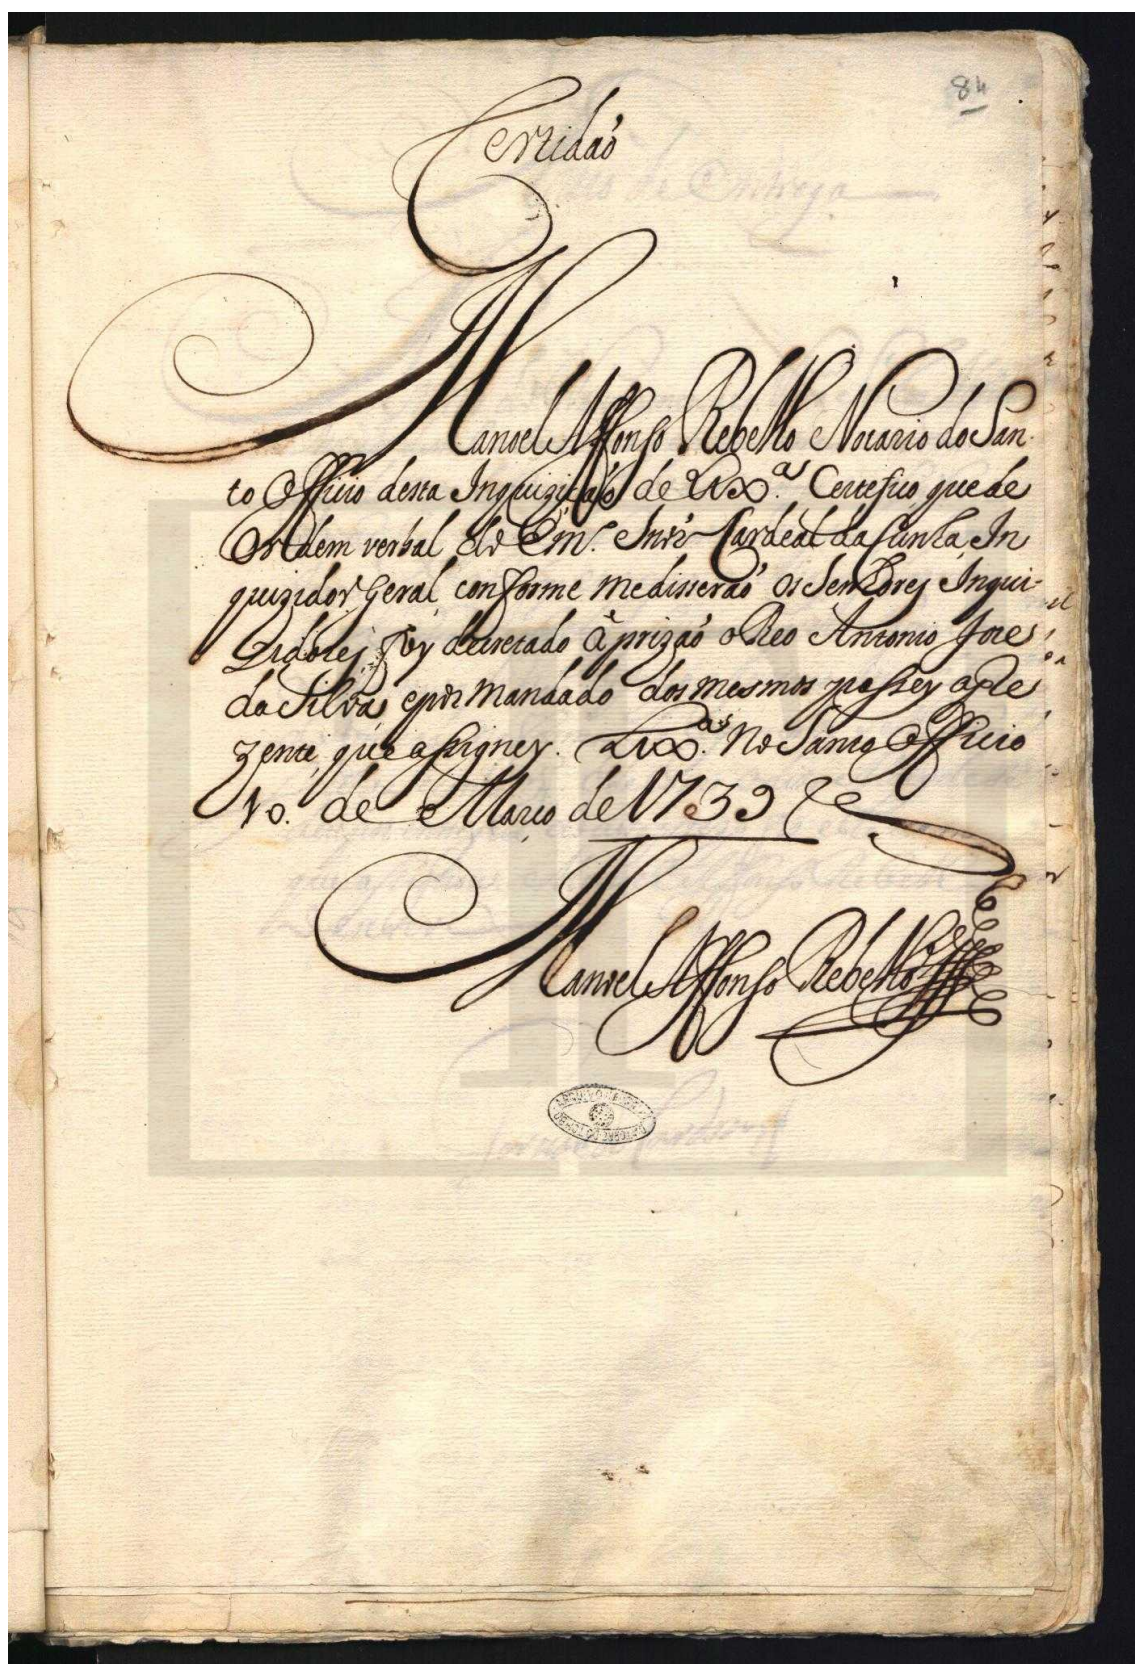 84
Certidaõ
Manoel Affonso Rebello Notario do San-
to Officio desta Inquiziçaõ de Lixª. Certefico que de
Ordem verbal do Em.º Snor Cardeal da Cunha, In
quizidor geral, conforme me disseraõ os Senhores Inqui-
zidores, foy decretado à prizaõ o Reo Antonio Joze
da Silva, e por mandado dos mesmos passey a pre
zente, que assigney. Lixª. No Santo Officio
10. de Março de 1739
Manoel Affonso Rebello